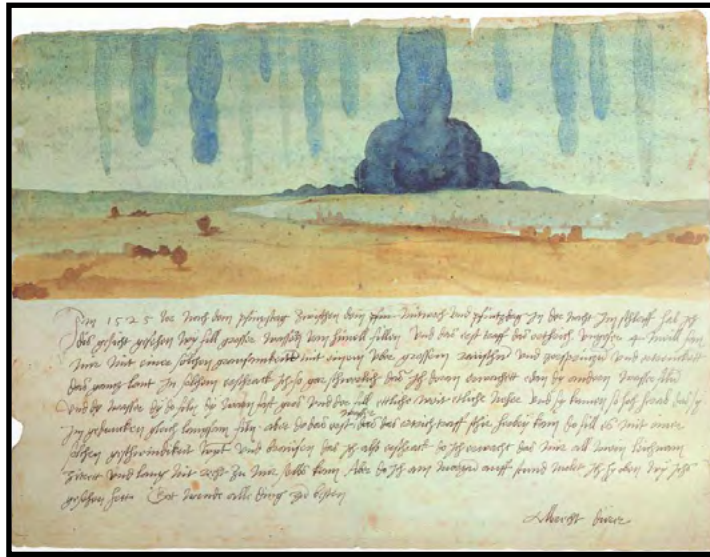 Im 1525 Jor nach dem pfinxstag zwischen dem Mitwoch und pfintzdag in der nacht im schlaff hab ich
dis gesicht gesehen wy fill grosser wassern vom himell fillen Und das erst traff das erthrich ungefer 4 meill fan
mir mit einer solchen grausamkeitt mit einem uber grossem raüschn und zersprützn und ertrenckett
das gannz lant In solchem erschrack ich so gar schwerlich das ich doran erwachett e dan dy andern wasser filn
Und dy wasser dy do filn dy warn fast gros und der fill ettliche weit etliche neher und sy kamen so hoch herab das sy
im gedancken gleich langsam filn aber do das erst wasser das das ertrich traff schir herbey kam do fill es mit einer
solchen geschwindikeit wynt und braüsen das ich also erschrack do ich erwacht das mir all mein leichnam
zitrett und lang nit recht zu mir selbs kam Aber do ich am morgn auff stund molet ich hy oben wy ichs
gesehen hett Got wende alle ding zu besten
Albrecht Dürer